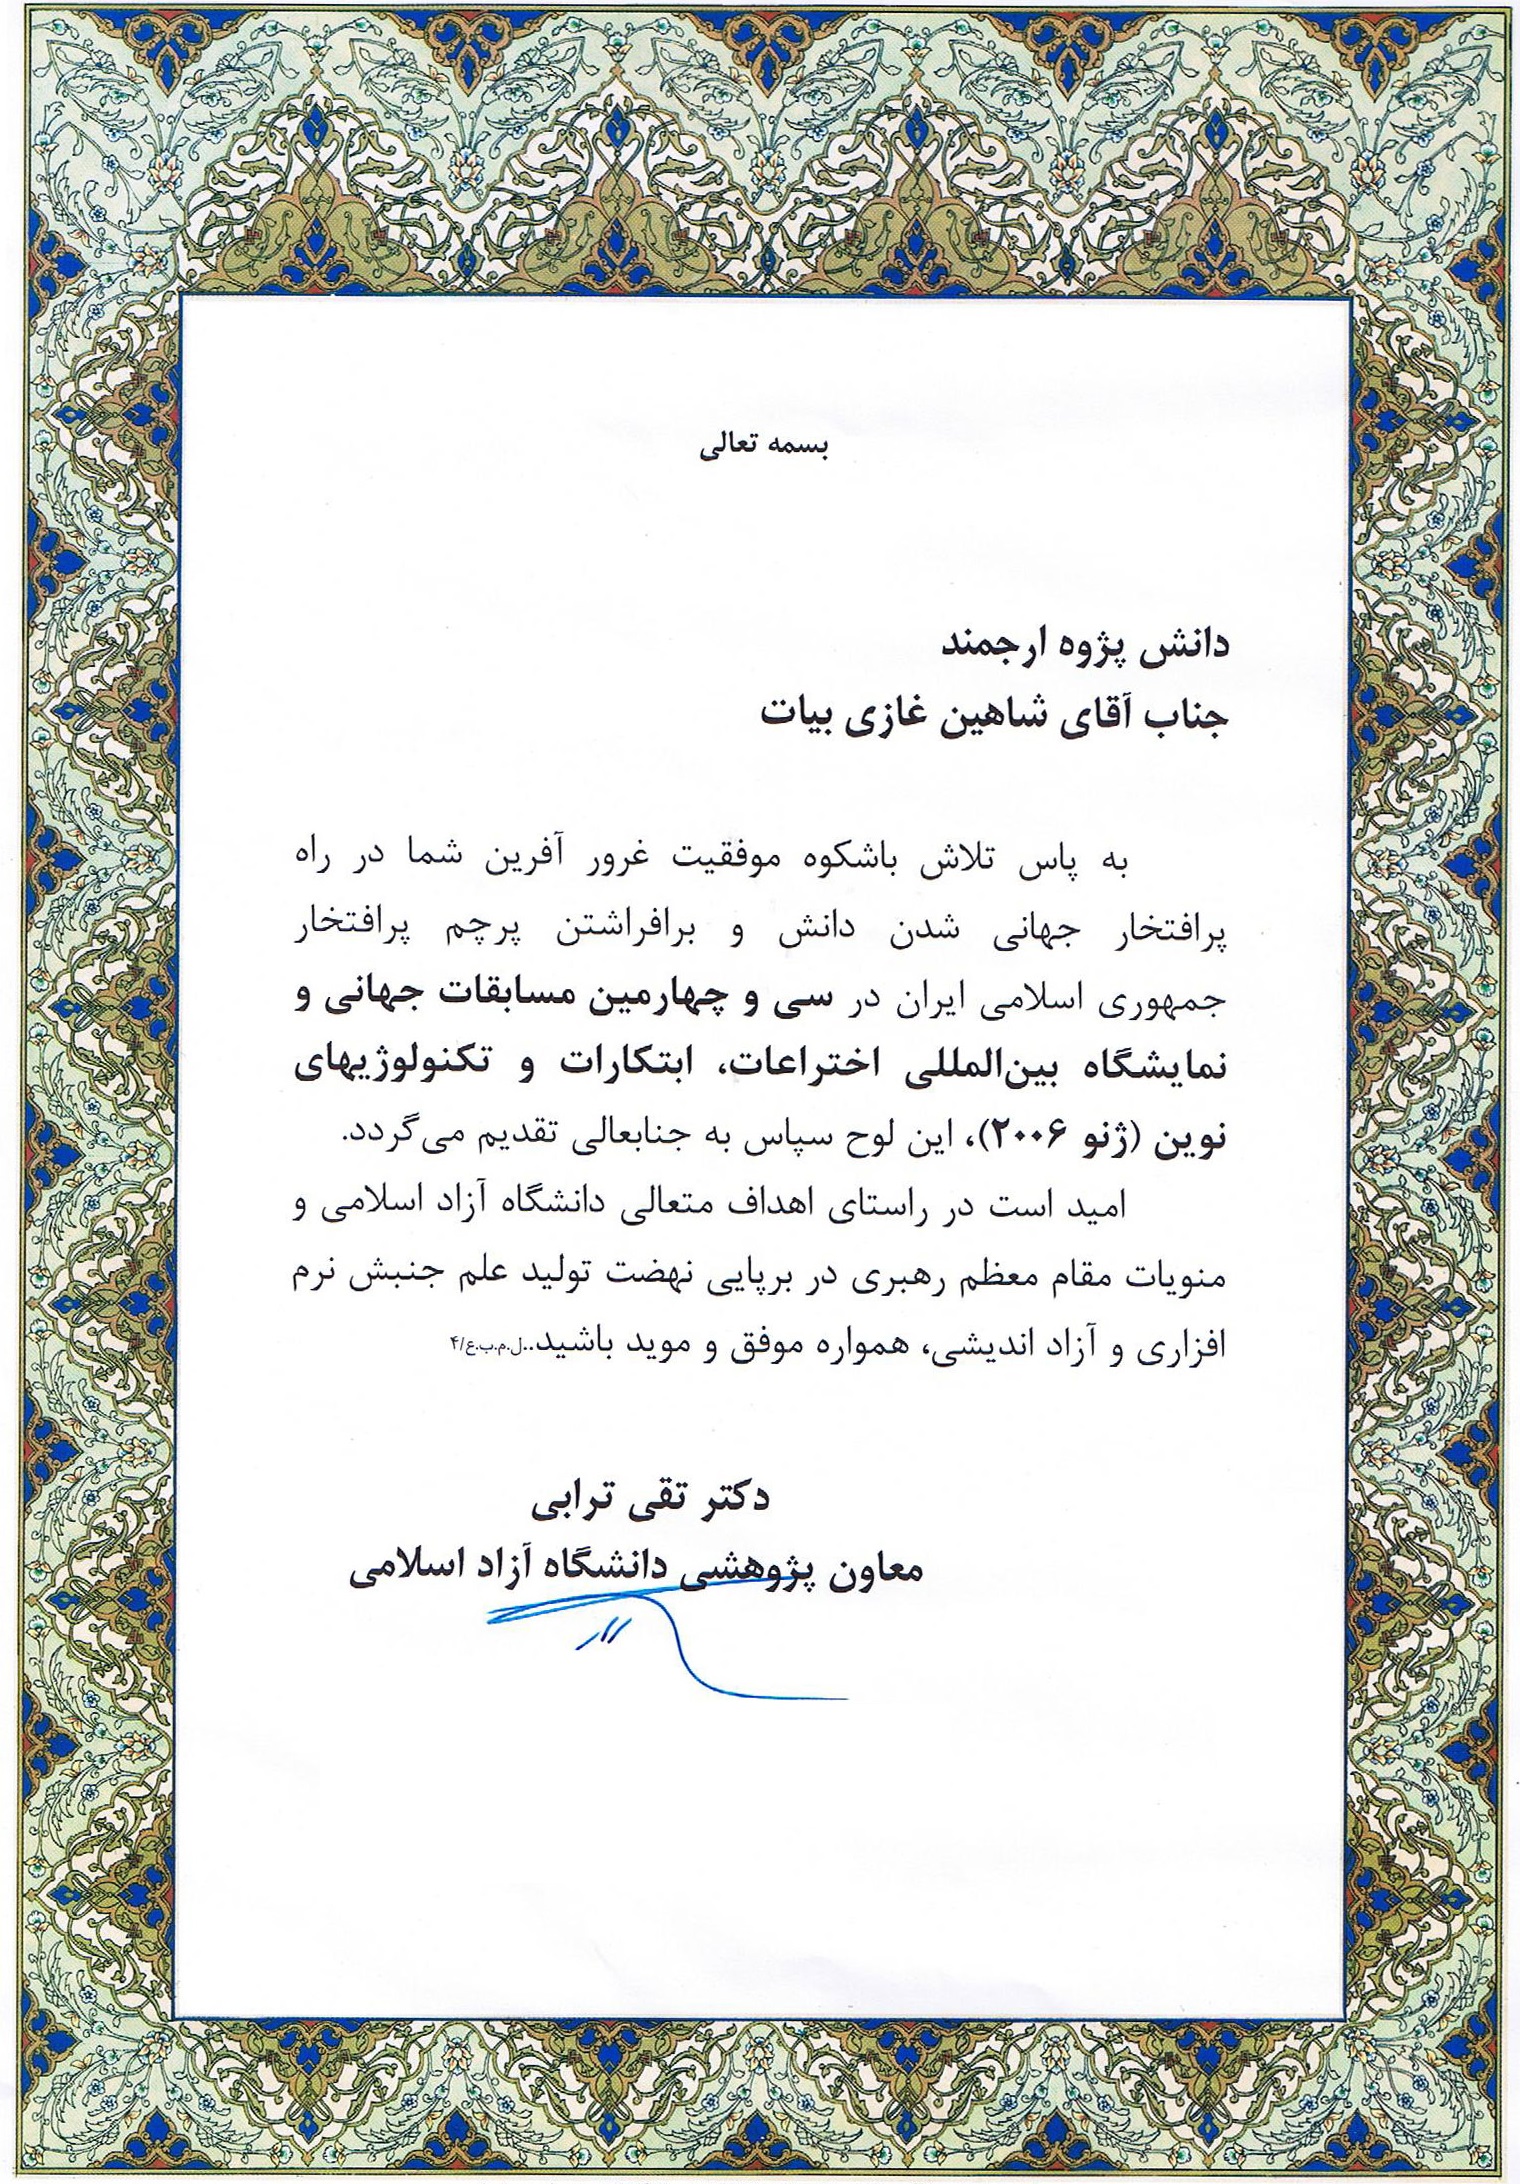 بسمه تعالی
دانش پژوه ارجمند
جناب آقای شاهین غازی بیات
به پاس تلاش باشکوه موفقیت غرور آفرین شما در راه
پرافتخار جهانی شدن دانش و برافراشتن پرچم پرافتخار
جمهوری اسلامی ایران در سی و چهارمین مسابقات جهانی و
نمایشگاه بین‌المللی اختراعات، ابتکارات و تکنولوژیهای
نوین (ژنو ۲۰۰۶)، این لوح سپاس به جنابعالی تقدیم می‌گردد.
امید است در راستای اهداف متعالی دانشگاه آزاد اسلامی و
منویات مقام معظم رهبری در برپایی نهضت تولید علم جنبش نرم
افزاری و آزاد اندیشی، همواره موفق و موید باشید..ل.م.ب.ع/۴
دکتر تقی ترابی
معاون پژوهشی دانشگاه آزاد اسلامی